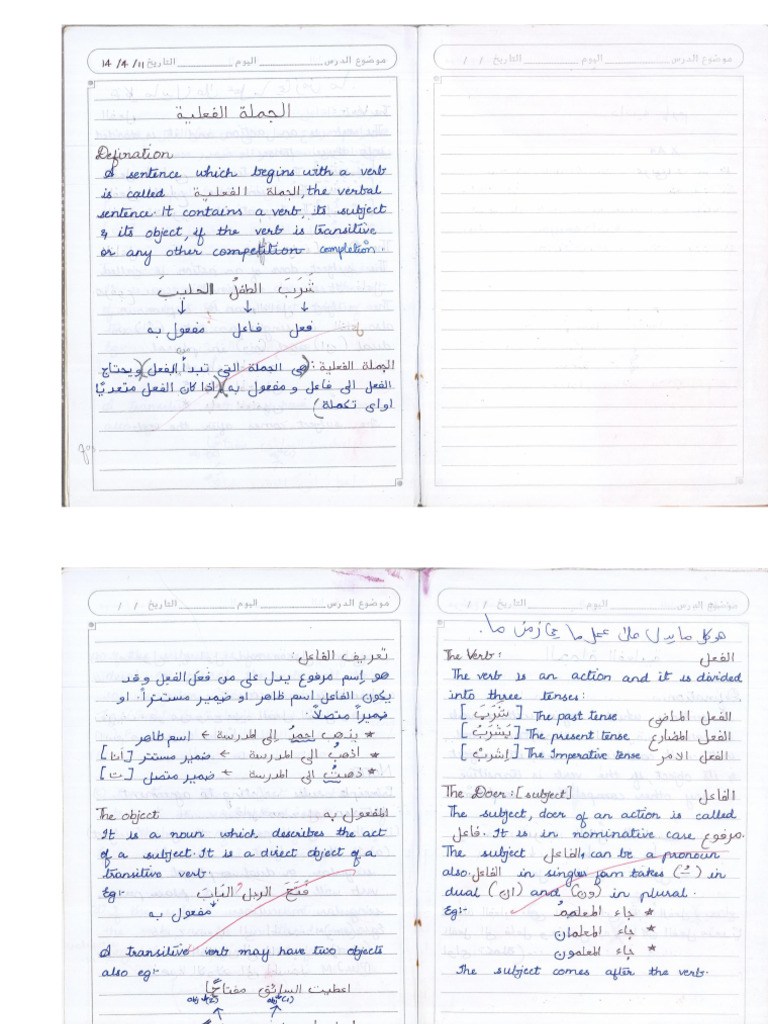 موضوع الدرس اليوم التاريخ 14/4/11
الجملة الفعلية
Defination
A sentence which begins with a verb
is called الجملة الفعلية, the verbal
sentence. It contains a verb, its subject
& its object, if the verb is transitive
or any other competition completion.
شَرَبَ الطفلُ الحليبَ
فعل فاعل مفعول به
الجملة الفعلية: (هي الجملة التي تبدأ بالفعل) (ويحتاج
الفعل الى فاعل و مفعول به) (اذا كان الفعل متعديًا
او اى تكملة)
موضوع الدرس اليوم التاريخ / /
موضوع الدرس اليوم التاريخ / /
هو كل ما يدل على عمل ما
The Verb: الفعل
The verb is an action and it is divided
into three tenses:
[شَرَبَ] The past tense الفعل الماضي
[يَشرَبُ] The present tense الفعل المضارع
[إشرَبْ] The Imperative tense الفعل الامر
The Doer: [subject] الفاعل
The subject, doer of an action is called
فاعل. It is in nominative case مرفوع.
The subject الفاعل, can be a pronoun
also. الفاعل in singler fam takes (ـُـ) in
dual (ان) and (ون) in plural.
Eg:- * جاء المعلمُ
* جاء المعلمان
* جاء المعلمون
The subject comes after the verb.
موضوع الدرس اليوم التاريخ / /
تعريف الفاعل:
هو إسم مرفوع يدل على من فعل الفعل وقد
يكون الفاعل اسم ظاهر او ضمير مستتراً. او
ضميراً متصلاً.
* يذهب احمدُ الى المدرسة ← اسم ظاهر
* أذهبُ الى المدرسة ← ضمير مستتر [أنا]
* ذهبتُ الى المدرسة ← ضمير متصل [ت]
The object المفعول به
It is a noun which describes the act
of a subject. It is a direct object of a
transitive verb.
Eg:- فَتَحَ الرجل البَابَ
مفعول به
A transitive verb may have two objects
also eg:-
اعطيت السائق مفتاحًا
obj(2) obj(1)